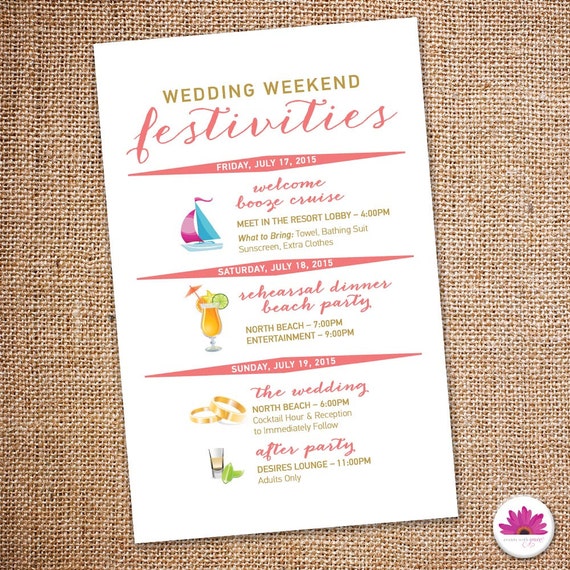 WEDDING WEEKEND
festivities
FRIDAY, JULY 17, 2015
welcome
booze cruise
MEET IN THE RESORT LOBBY – 4:00PM
What to Bring: Towel, Bathing Suit
Sunscreen, Extra Clothes
SATURDAY, JULY 18, 2015
rehearsal dinner
beach party
NORTH BEACH – 7:00PM
ENTERTAINMENT – 9:00PM
SUNDAY, JULY 19, 2015
the wedding
NORTH BEACH – 6:00PM
Cocktail Hour & Reception
to Immediately Follow
after party
DESIRES LOUNGE – 11:00PM
Adults Only